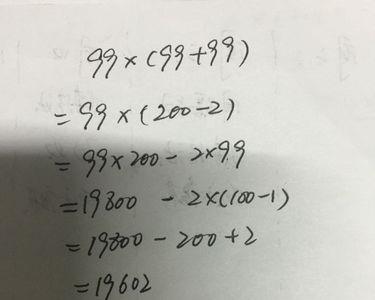 99×(99+99)
=99×(200-2)
=99×200-2×99
=19800-2×(100-1)
=19800-200+2
=19602